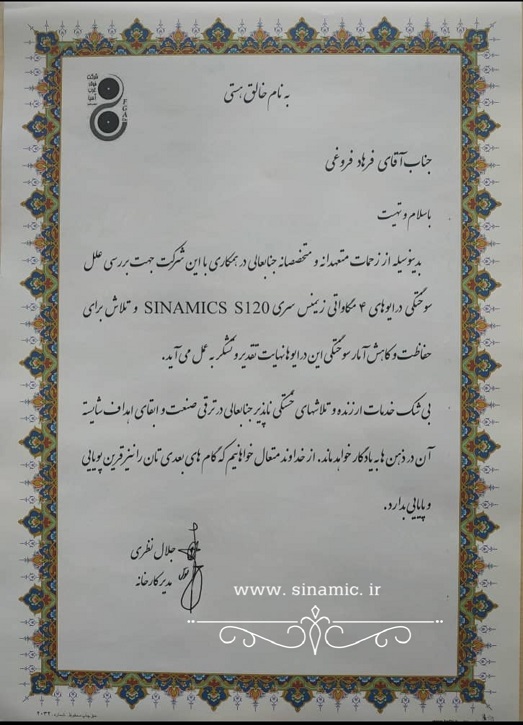 به نام خالق هستی
شرکت
فولاد
غرب
آسیا
FGAP
جناب آقای فرهاد فروغی
باسلام و تحیت
بدینوسیله از زحمات متعهدانه و متخصصانه جنابعالی در همکاری با این شرکت جهت بررسی علل
سوختگی درایوهای ۴ مگاواتی زیمنس سری SINAMICS S120 و تلاش برای
حفاظت و کاهش آمار سوختگی این درایوها نهایت تقدیر و تشکر به عمل می آید.
بی شک خدمات ارزنده و تلاشهای خستگی ناپذیر جنابعالی در ترقی صنعت و ابقای اهداف شایسته
آن در ذهن ها به یادگار خواهد ماند. از خداوند متعال خواهانیم که گام های بعدی تان را نیز قرین پویایی
و پایایی بدارد.
جلال نظری
مدیر کارخانه
www. sinamic. ir